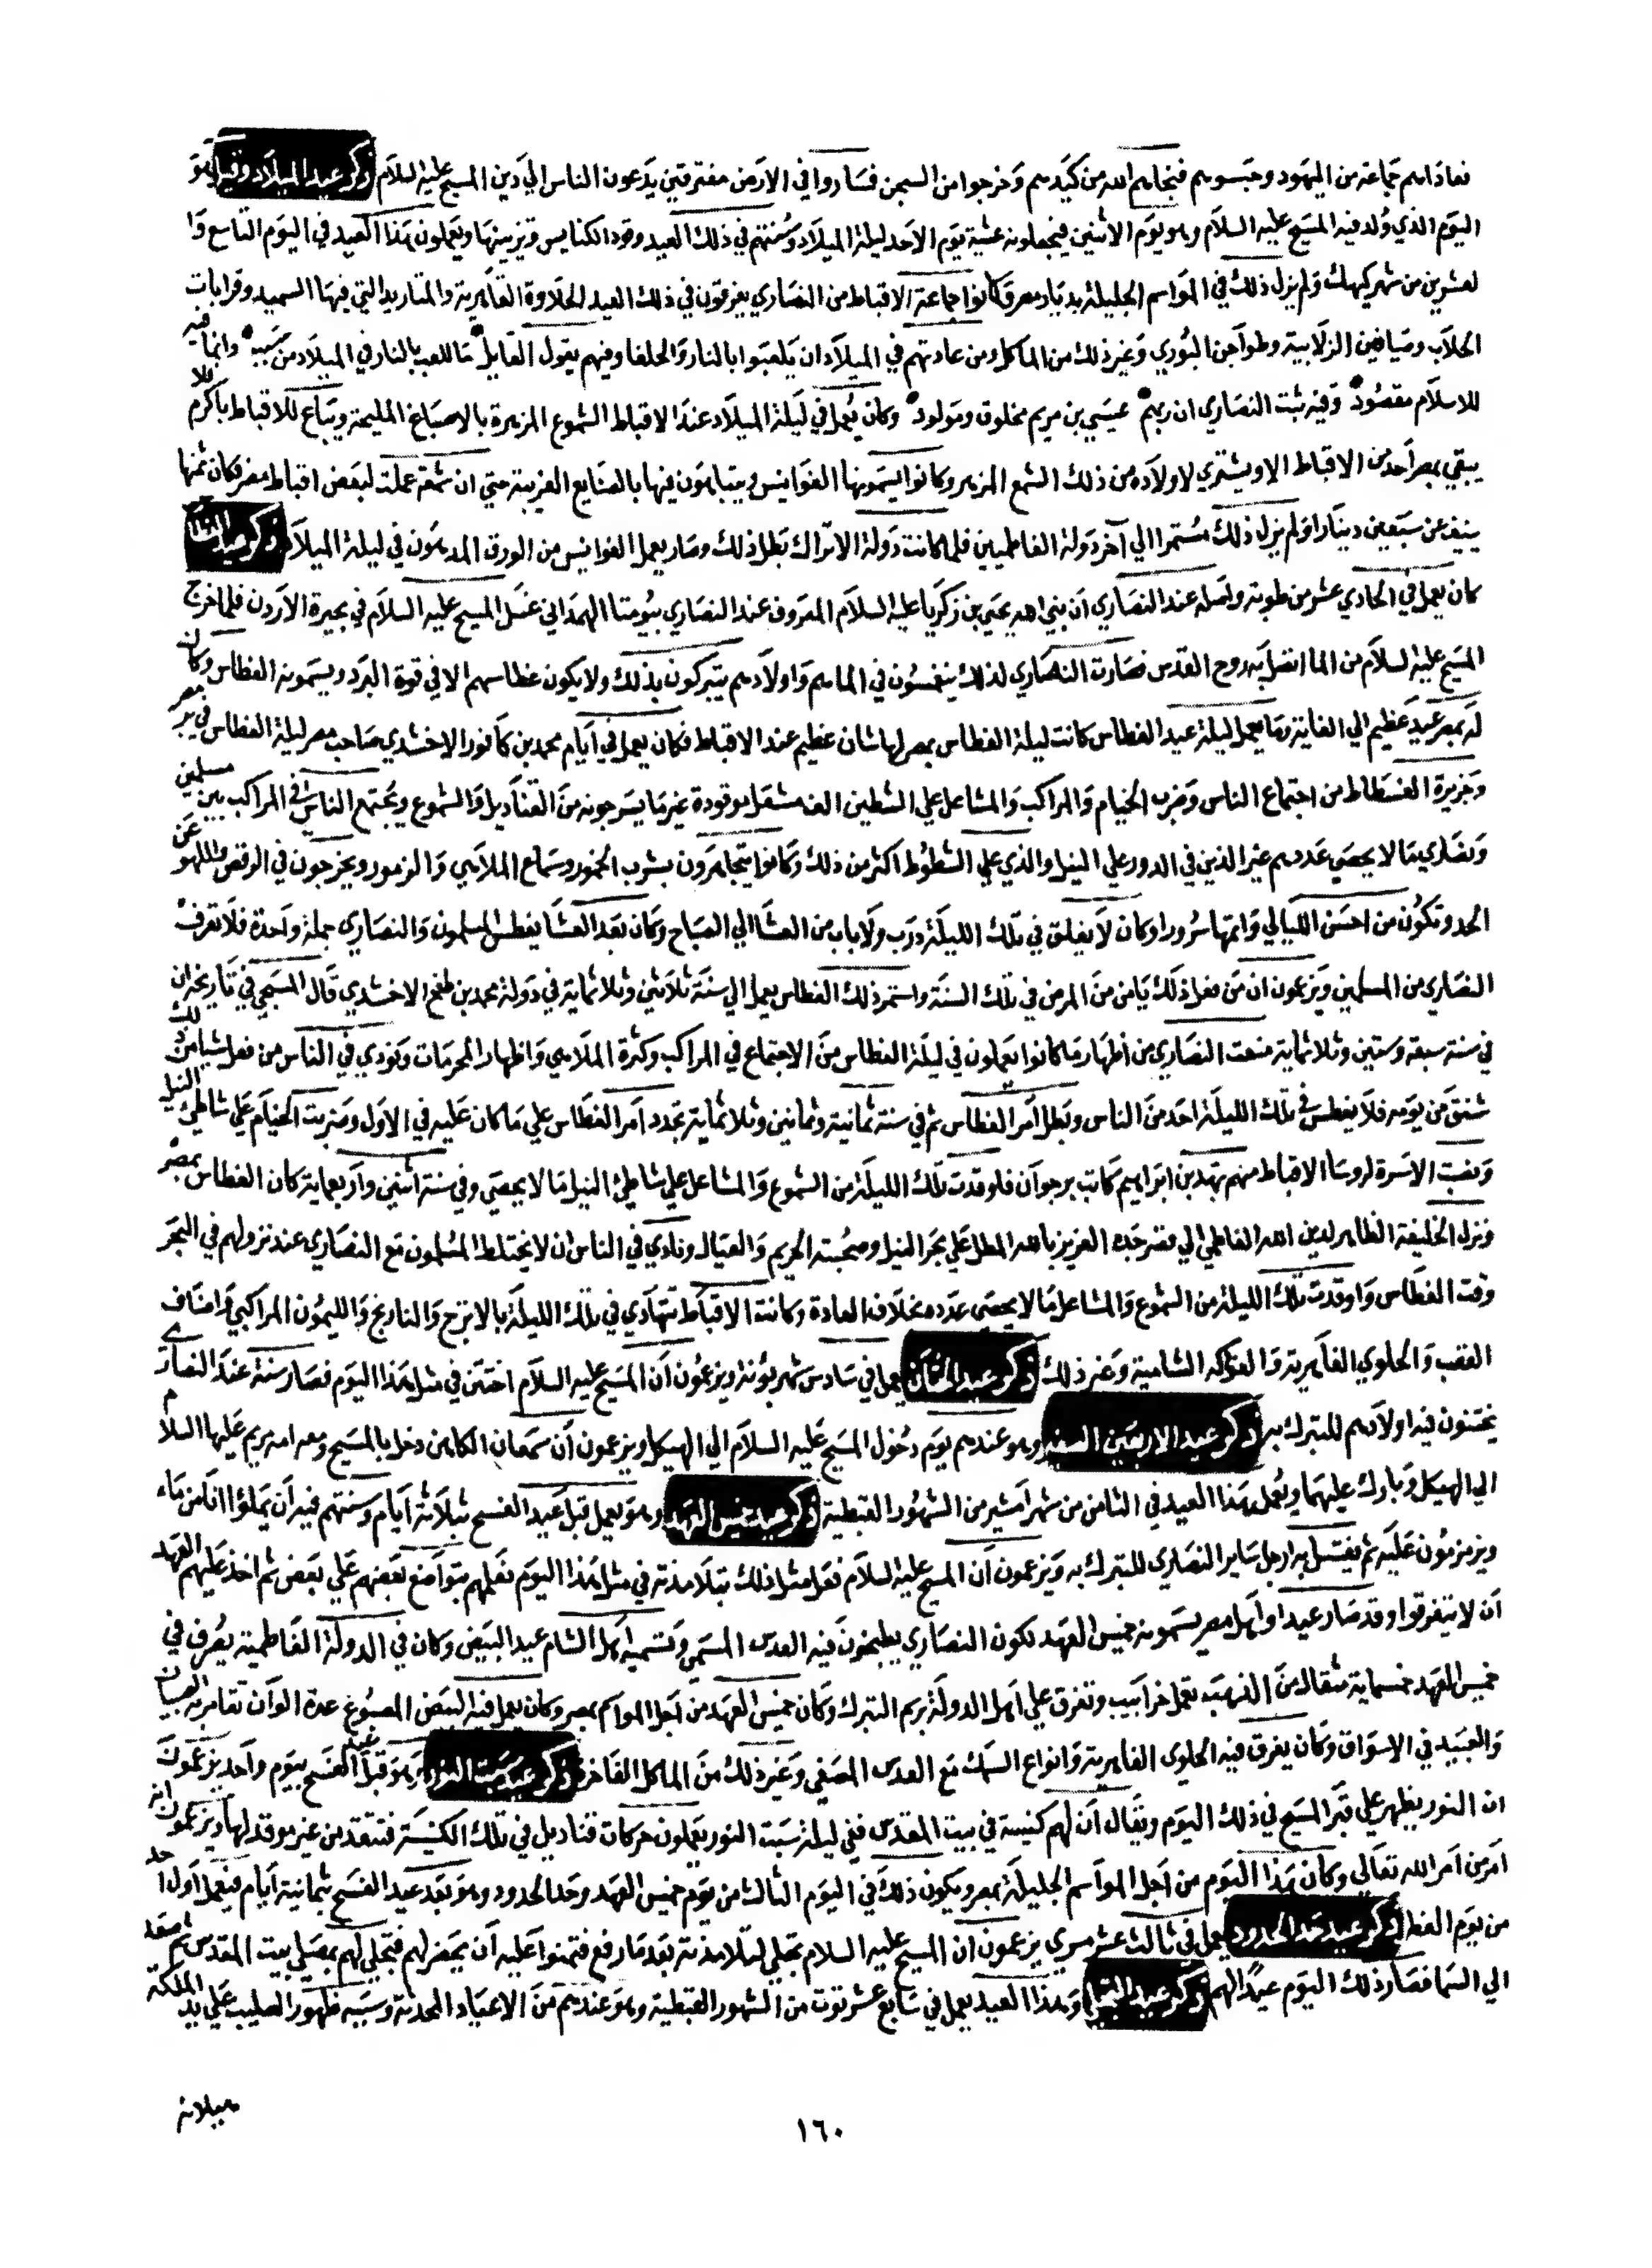 فعاداهم جماعة من اليهود وحبسوهم فنجاهم الله من كيدهم وخرجوا من السجن فساروا في الارض مفترقين يدعون الناس الي دين المسيح عليه السلام ذكر عيد الميلاد وقيل هو
اليوم الذي ولد فيه المسيح عليه السلام وهو يوم الاثنين فيجعلونه عشية يوم الاحد ليلة الميلاد وسنتهم في ذلك العيد وقود الكنايس وتزيينها ويعملون هذا العيد في اليوم التاسع وا
لعشرين من شهر كيهك ولم يزل ذلك في المواسم الجليلة بديار مصر وكانوا جماعة الاقباط من النصاري يفرقون في ذلك العيد الحلاوة القاهرية والمتاريد التي فيها السميد وقرابات
الجلاب وصيافين الزلابية وطواجن البوري وغير ذلك من الماكل ومن عادتهم في الميلاد ان يلعبوا بالنار والحلفا وفيهم يقول القايل ما اللعب بالنار في الميلاد من سببه وانما فيه
للاسلام مقصود وفيه ثبت النصاري ان ربهم عيسي بن مريم مخلوق ومولود وكان يعمل في ليلة الميلاد عند الاقباط الشموع المزهرة بالاصباغ المليحة ويباع للاقباط باكرم فلا
يبقي بمصر احد من الاقباط الا ويشتري لاولاده من ذلك الشمع المزهر وكانوا يسمونها الفوانيس ويتباهون فيها بالصنايع الغريبة حتي ان شمعة عملت لبعض اقباط مصر فكان ثمنها
ينيف عن سبعين دينارا ولم يزل ذلك مستمرا الي آخر دولة الفاطميين فلما كانت دولة الاتراك بطل ذلك وصار يعمل الفوانيس من الورق المدهون في ليلة الميلاد ذكر عيد الغطاس
كان يعمل في الحادي عشر من طوبة واصله عند النصاري ان بني اهد يحيي بن زكريا عليه السلام المعروف عند النصاري بيوحنا المعمداني غسل المسيح عليه السلام في بحيرة الاردن فلما خرج
المسيح عليه السلام من الما اتصل به روح القدس فصارت النصاري لذلك يغمسون في الما هم واولادهم يتبركون بذلك ولا يكون غطاسهم الا في قوة البرد ويسمونه الغطاس وكان
له بمصر عيد عظيم الي الغاية وما يعمل ليلة عيد الغطاس كانت ليلة الغطاس بمصر لها شان عظيم عند الاقباط فكان يعمل في ايام محمد بن كافور الاخشدي صاحب مصر ليلة الغطاس في بر مصر
وجزيرة الفسطاط من اجتماع الناس وضرب الخيام والمراكب والمشاعل علي الشطين الف مشعل موقودة غير ما يسرجونه من القناديل والشموع ويجتمع الناس في المراكب بين مسلمين
ونصاري ما لا يحصي عددهم غير الذين في الدور علي النيل والذي علي الشطوط اكثر من ذلك وكانوا يتجاهرون بشرب الخمور وسماع الملاهي والزمور ويخرجون في الرقص واللهو عن
الحد وتكون من احسن الليالي واتمها سرورا وكان لا يغلق في تلك الليلة درب ولا باب من العشا الي الصباح وكان بعد العشا يغطس المسلمون والنصاري جملة واحدة فلا تعرف
النصاري من المسلمين ويزعمون ان من فعل ذلك يامن من المرض في تلك السنة واستمر ذلك الغطاس يعمل الي سنة ثلاثين وثلاثماية في دولة محمد بن طغج الاخشدي قال المسبحي في تاريخه ان
في سنة سبعة وستين وثلاثماية منعت النصاري من اظهار ما كانوا يعملون في ليلة الغطاس من الاجتماع في المراكب وكثرة الملاهي واظهار المحرمات ونودي في الناس من فعل شيا من ذلك
شنق من يومه فلا يغطس في تلك الليلة احد من الناس وبطل امر الغطاس ثم في سنة ثمانية وثمانين وثلاثماية تجدد امر الغطاس علي ما كان عليه في الاول وضربت الخيام علي شاطئ النيل
ونصبت الاسرة لروسا الاقباط منهم فهد بن ابراهيم كاتب برجوان فاوقدت تلك الليلة من الشموع والمشاعل علي شاطئ النيل ما لا يحصي وفي سنة اثنين واربعماية كان الغطاس بمصر
ونزل الخليفة الظاهر لدين الله الفاطمي الي قصر جده العزيز بالله المطل علي بحر النيل وصحبته الحريم والعيال ونادي في الناس ان لا يختلط المسلمون مع النصاري عند نزولهم في البحر
وقت الغطاس واوقدت تلك الليلة من الشموع والمشاعل ما لا يحصي عدده بخلاف العادة وكانت الاقباط تتهادي في تلك الليلة بالاترج والنارنج والليمون المراكبي واصناف
القصب والحلوي القاهرية والفواكه الشامية وغير ذلك ذكر عيد الختان يعمل في سادس شهر بؤنة ويزعمون ان المسيح عليه السلام اختتن في مثل هذا اليوم فصار سنة عند النصاري
يختنون فيه اولادهم للتبرك به ذكر عيد الاربعين السيد وهو عندهم يوم دخول المسيح عليه السلام الي الهيكل ويزعمون ان سمعان الكاهن دخل بالمسيح ومعه امه مريم عليها السلام
الي الهيكل وبارك عليهما ويعمل هذا العيد في الثامن من شهر امشير من الشهور القبطية ذكر عيد خميس العهد وهو يعمل قبل عيد الفسح بثلاثة ايام وسنتهم فيه ان يملؤا انا من ماء
ويزمزمون عليه ثم يغتسل به ارجل ساير النصاري للتبرك به ويزعمون ان المسيح عليه السلام فعل مثل ذلك بتلامذته في مثل هذا اليوم فعلمهم بتواضع بعضهم علي بعض ثم اخذ عليهم العهد
ان لا يتفرقوا وقد صار عيدا واهل مصر يسمونه خميس العهد لكون النصاري يطبخون فيه العدس المسمي وتسميه اهل الشام عيد البيض وكان في الدولة الفاطمية يصرف في
خميس العهد خمسماية مثقال من الذهب تعمل خراريب وتفرق علي اهل الدولة برسم التبرك وكان خميس العهد من اجل المواسم بمصر وكان يعمل فيه البيض المصبوغ عدة الوان تقامر به الصبيان
والعبيد في الاسواق وكان يفرق فيه الحلوي القاهرية وانواع السمك مع العدس المصفي وغير ذلك من الماكل الفاخرة ذكر عيد سبت النور وهو قبل عيد الفسح بيوم واحد يزعمون
ان النور يظهر علي قبر المسيح في ذلك اليوم ويقال ان لهم كنيسة في بيت المقدس ففي ليلة سبت النور يعملون حركات قناديل في تلك الكنيسة فتتقد من غير موقد لها ويزعمون انه
امر من امر الله تعالي وكان هذا اليوم من اجل المواسم الجليلة بمصر ويكون ذلك في اليوم الثالث من يوم خميس العهد وحد الحدود وهو بعد عيد الفسح بثمانية ايام فيعمل اول احد
من يوم الفطر ذكر عيد حد الحدود يعمل في ثالث عشر مسري يزعمون ان المسيح عليه السلام تجلي لتلامذته بعد ما رفع فتمنوا عليه ان يحضر لهم فتجلي لهم بمصلي بيت المقدس ثم صعد
الي السما فصار ذلك اليوم عيدا لهم ذكر عيد التجلي وهذا العيد يعمل في سابع عشر توت من الشهور القبطية وهو عندهم من الاعياد المحدثة وسببه ظهور الصليب علي يد الملكة
هيلانة
١٦٠